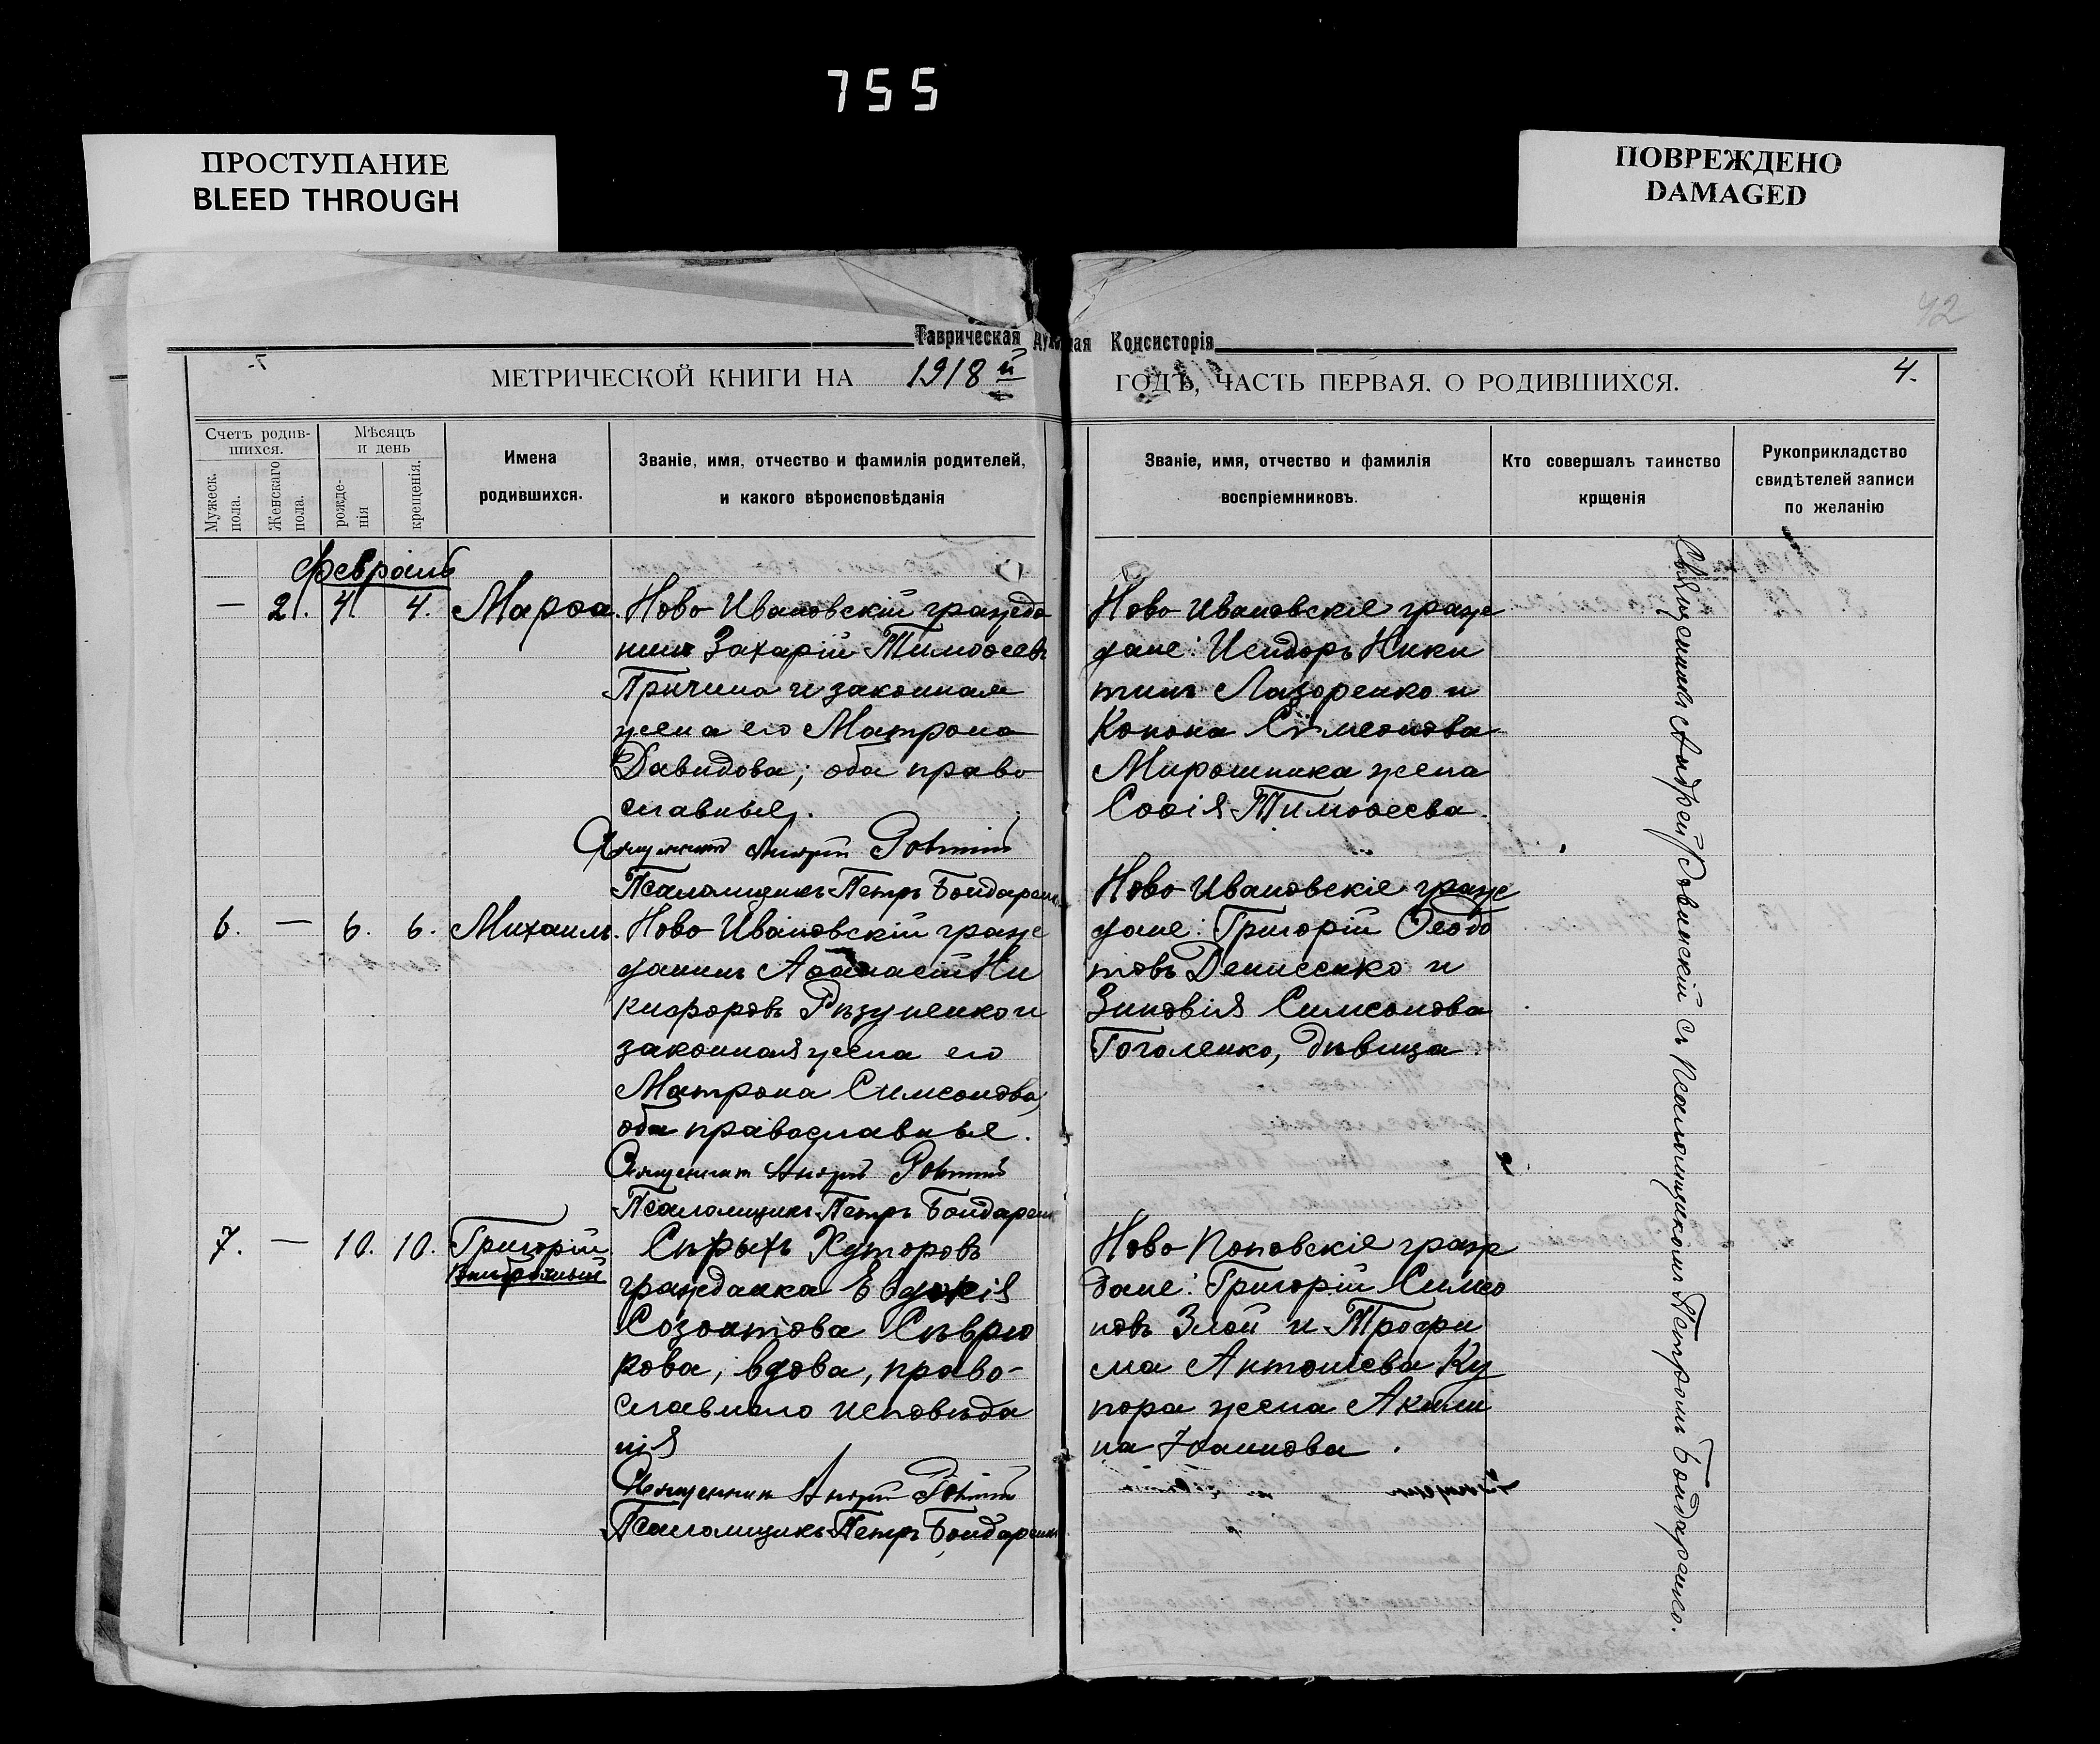 755
ПРОСТУПАНИЕ
BLEED THROUGH
ПОВРЕЖДЕНО
DAMAGED
42
Таврическая Духовная Консисторія
МЕТРИЧЕСКОЙ КНИГИ НА 1918й ГОДЪ, ЧАСТЬ ПЕРВАЯ. О РОДИВШИХСЯ. 4.
Счетъ родив-
шихся.
Мужеск.
пола.
Женскаго
пола.
Мѣсяцъ
и день
рожде-
нія
крещенія.
Имена
родившихся.
Званіе, имя, отчество и фамилія родителей,
и какого вѣроисповѣданія
Званіе, имя, отчество и фамилія
воспріемниковъ.
Кто совершалъ таинство
крщенія
Рукоприкладство
свидѣтелей записи
по желанію
Февраль
— 2. 4. 4. Марѳа.
Ново Ивановскій гражда
нинъ Захарій Тимоѳеевъ
Причина и законная
жена его Матрона
Давидова; оба право
славные.
Священникъ Андрей Ровинскій
Псаломщикъ Петръ Бондаренко
Ново Ивановскіе граж
дане: Исидоръ Ники
тинъ Лазоренко и
Конона Сѵмеонова
Мирошника жена
Софія Тимоѳеева.
6. — 6. 6. Михаилъ.
Ново Ивановскій граж
данинъ Аѳанасій Ни
кифоровъ Рѣзуненко и
законная жена его
Матрона Симеонова,
оба православные.
Священникъ Андрей Ровинскій
Псаломщикъ Петръ Бондаренко
Ново Ивановскіе граж
дане: Григорій Ѳеодо
товъ Денисенко и
Зиновія Симеонова
Гоголенко, дѣвица
7. — 10. 10. Григорій
внѣбрачный
Сѣрыхъ Хуторовъ
гражданка Евдокія
Созонтова Сѣврю
кова, вдова, право-
славнаго исповѣда
нія
Священникъ Андрей Ровинскій
Псаломщикъ Петръ Бондаренко
Ново Поповскіе граж
дане: Григорій Симео
новъ Злой и Трофи
ма Антоніева Ку
пора жена Акили
на Іоаннова.
Священникъ Андрей Ровинскій съ псаломщикомъ Петромъ Бондаренко.